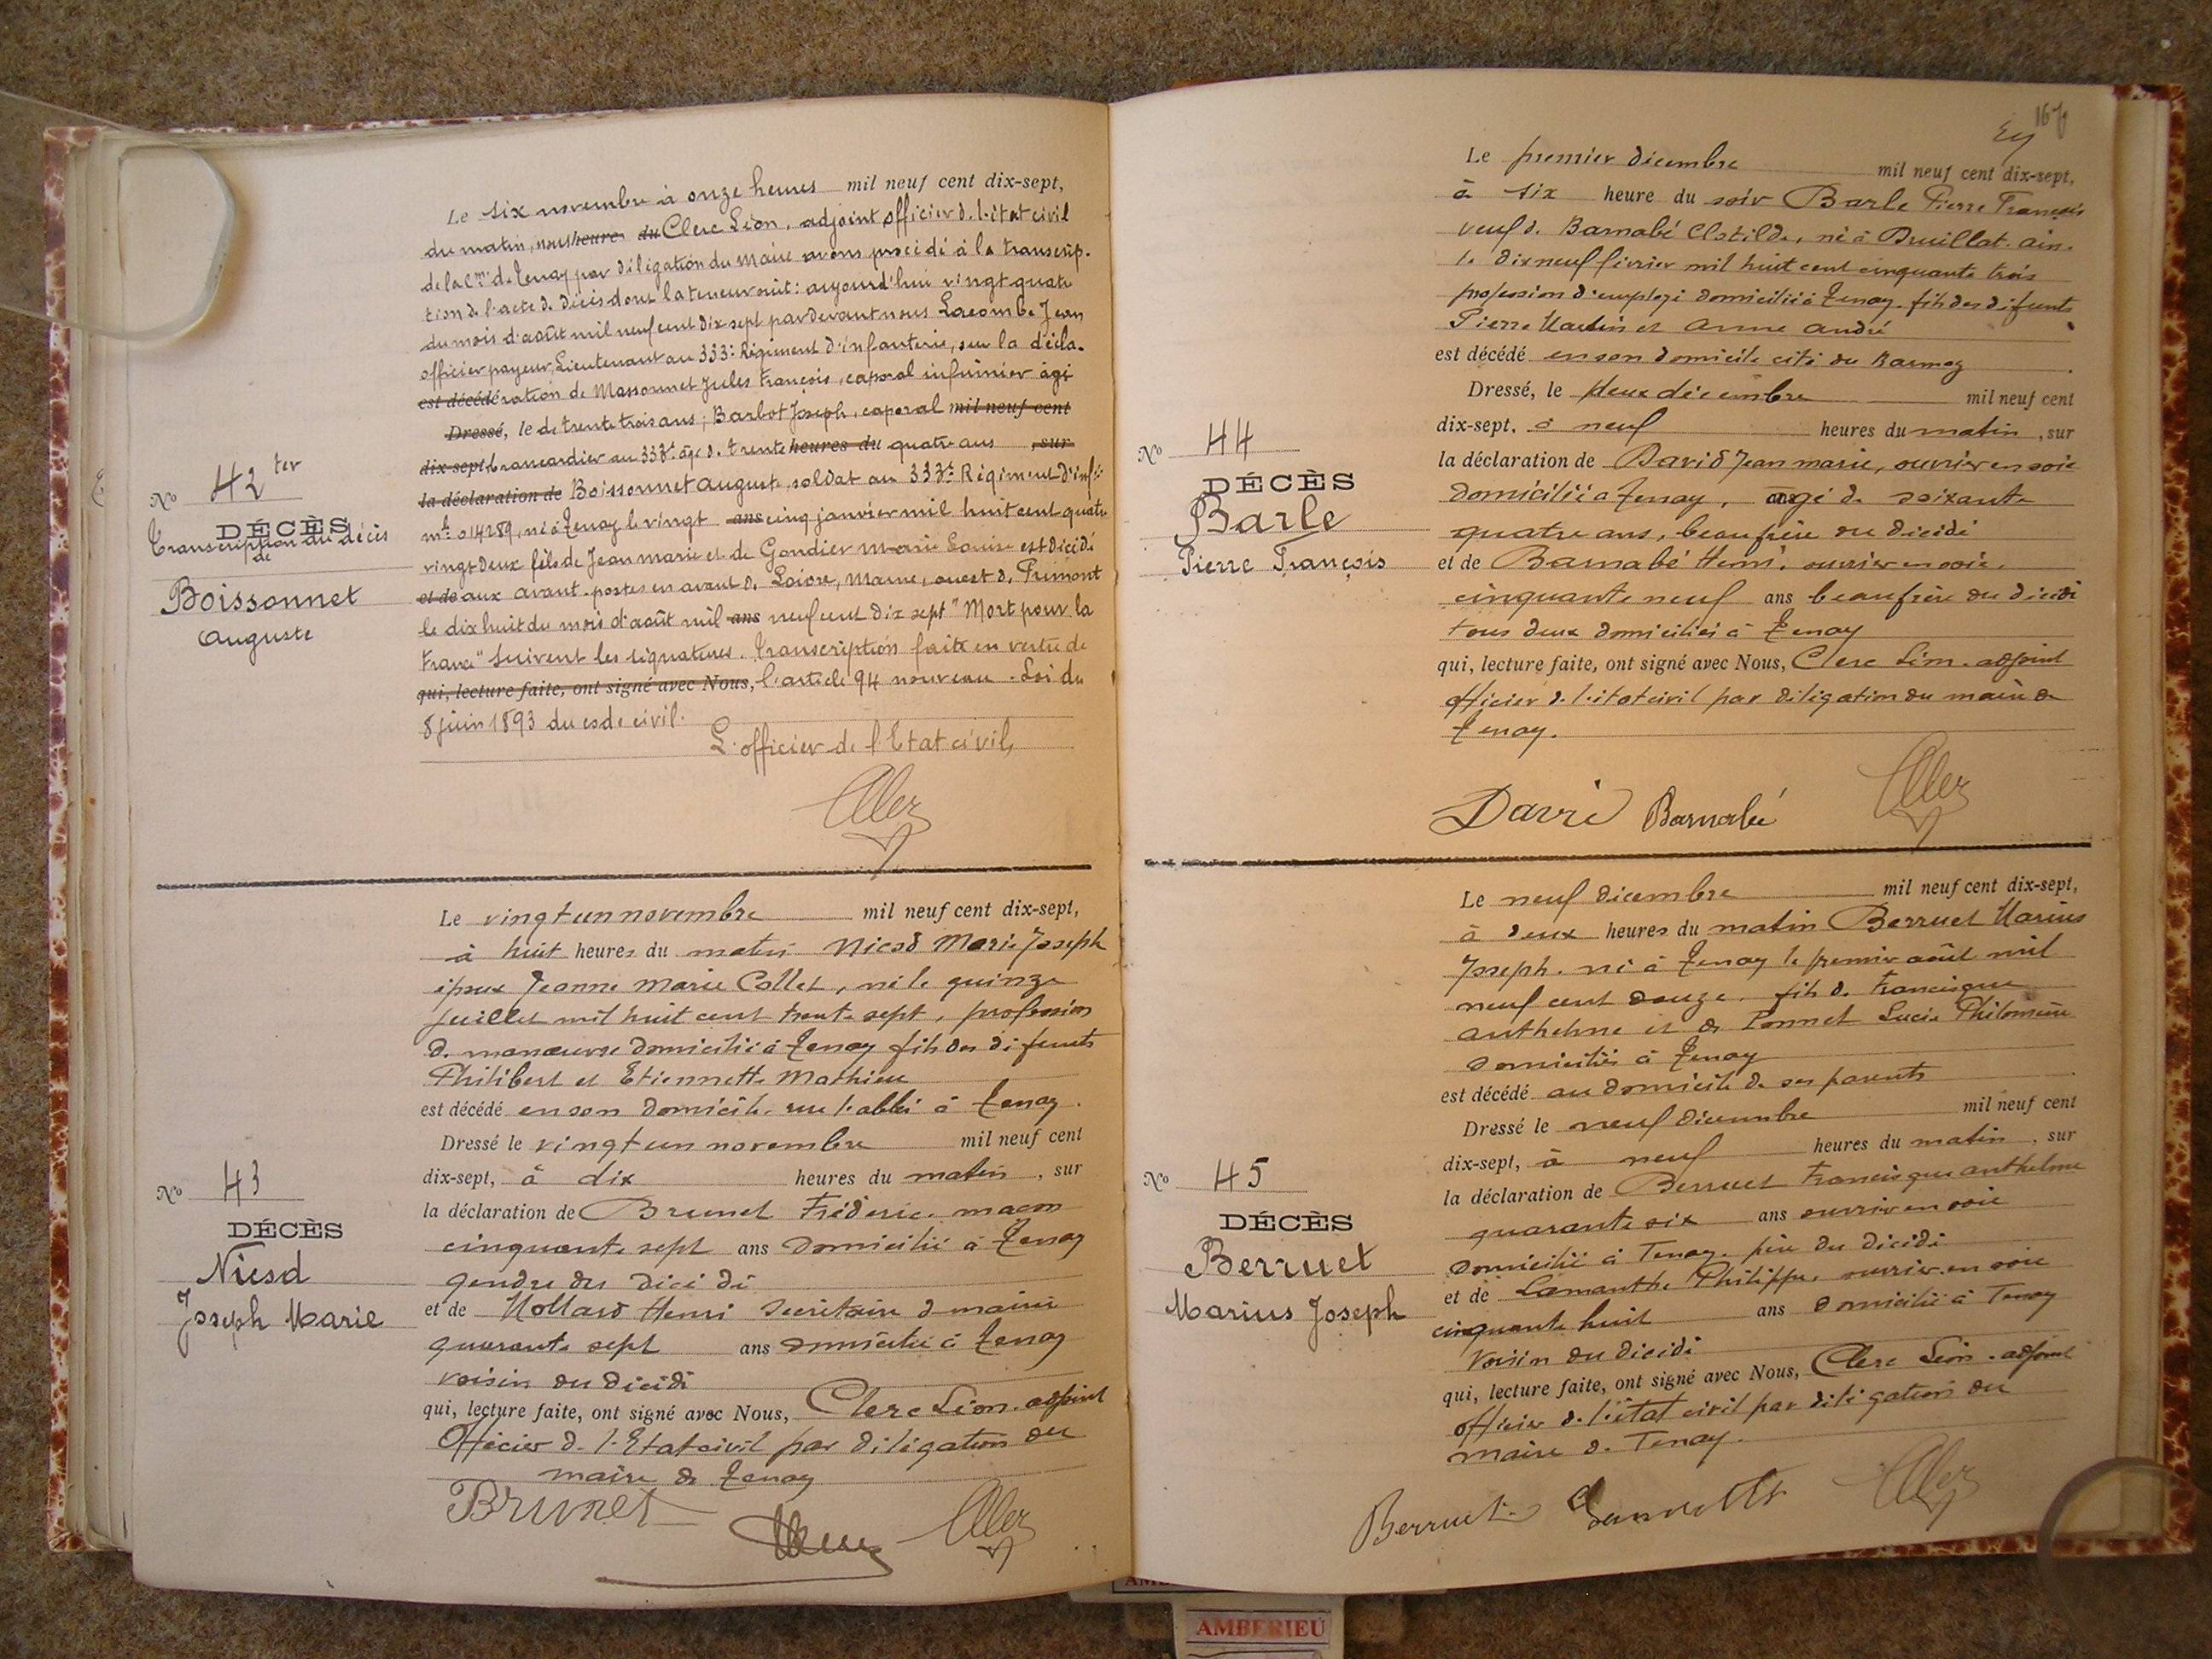 No 42 ter
DÉCÈS
Transcription du décès
de
Boissonnet
Auguste
Le six novembre à onze heures mil neuf cent dix-sept,
du matin, nous heures du Clerc Léon, adjoint officier de l'état civil
de la Cne de Tenay par délégation du Maire avons procédé à la transcrip-
tion de l'acte de décès dont la teneur suit : aujourd'hui vingt quatre
du mois d'août mil neuf cent dix sept par devant nous Lacombe Jean
officier payeur, Lieutenant au 333e Régiment d'infanterie, sur la décla-
est décédé ration de Massonnet Jules François, caporal infirmier âgé
Dressé, le de trente trois ans ; Barbot Joseph, caporal mil neuf cent
dix-sept brancardier au 333e âgé de trente heures du quatre ans , sur
la déclaration de Boissonnet Auguste, soldat au 333e Régiment d'infie
mle 014289, né à Tenay le vingt ans cinq janvier mil huit cent quatre
vingt deux fils de Jean marie et de Gondier Marie Louise est décédé
et de aux avant-postes en avant de Loivre, Marne, ouest de Brimont
le dix huit du mois d'août mil ans neuf cent dix sept "Mort pour la
France" Suivent les signatures. Transcription faite en vertu de
qui, lecture faite, ont signé avec Nous, l'article 94 nouveau. Loi du
8 juin 1893 du code civil.
L'officier de l'Etat civil,
No 43
DÉCÈS
Nicod
Joseph Marie
Le vingt un novembre mil neuf cent dix-sept,
à huit heures du matin Nicod Marie Joseph
époux Jeanne Marie Collet, né le quinze
juillet mil huit cent trente sept, profession
de manœuvre domicilié à Tenay fils des défunts
Philibert et Etiennette Mathieu
est décédé en son domicile rue l'abbé à Tenay.
Dressé le vingt un novembre mil neuf cent
dix-sept, à dix heures du matin , sur
la déclaration de Brunet Frédéric, maçon
cinquante sept ans domicilié à Tenay
gendre du décédé
et de Mollard Henri secrétaire de mairie
quarante sept ans domicilié à Tenay
voisin du décédé
qui, lecture faite, ont signé avec Nous, Clerc Léon. adjoint
Officier de l'Etat civil par délégation du
maire de Tenay
Brunet
167
Le premier décembre mil neuf cent dix-sept,
à six heure du soir Barle Pierre François
veuf de Barnabé Clotilde, né à Druillat. Ain.
le dix neuf février mil huit cent cinquante trois
profession d'employé domicilié à Tenay. fils des défunts
Pierre Martin et Anne André
est décédé en son domicile cité du
Dressé, le deux décembre mil neuf cent
No 44
DÉCÈS
Barle
Pierre François
dix-sept, à neuf heures du matin , sur
la déclaration de David Jean marie, ouvrier en soie
domicilié à Tenay, âgé de soixante
quatre ans, beau frère du décédé
et de Barnabé Henri, ouvrier en soie.
cinquante neuf ans beau frère du décédé
tous deux domiciliés à Tenay
qui, lecture faite, ont signé avec Nous, Clerc Léon. adjoint
officier de l'état civil par délégation du maire de
Tenay.
David Barnabé
No 45
DÉCÈS
Berruet
Marius Joseph
Le neuf décembre mil neuf cent dix-sept,
à deux heures du matin Berruet Marius
Joseph. né à Tenay le premier août mil
neuf cent douze. fils de Francisque
Anthelme et de Ponnet Lucie Philomène
domiciliés à Tenay
est décédé au domicile de ses parents
Dressé le neuf décembre mil neuf cent
dix-sept, à neuf heures du matin , sur
la déclaration de Berruet Francisque Anthelme
quarante six ans ouvrier en soie
domicilié à Tenay. père du décédé
et de Lamanthe Philippe, ouvrier en soie
cinquante huit ans domicilié à Tenay
voisin du décédé
qui, lecture faite, ont signé avec Nous, Clerc Léon. adjoint
officier de l'état civil par délégation du
maire de Tenay.
Berruet
AMBERIEU